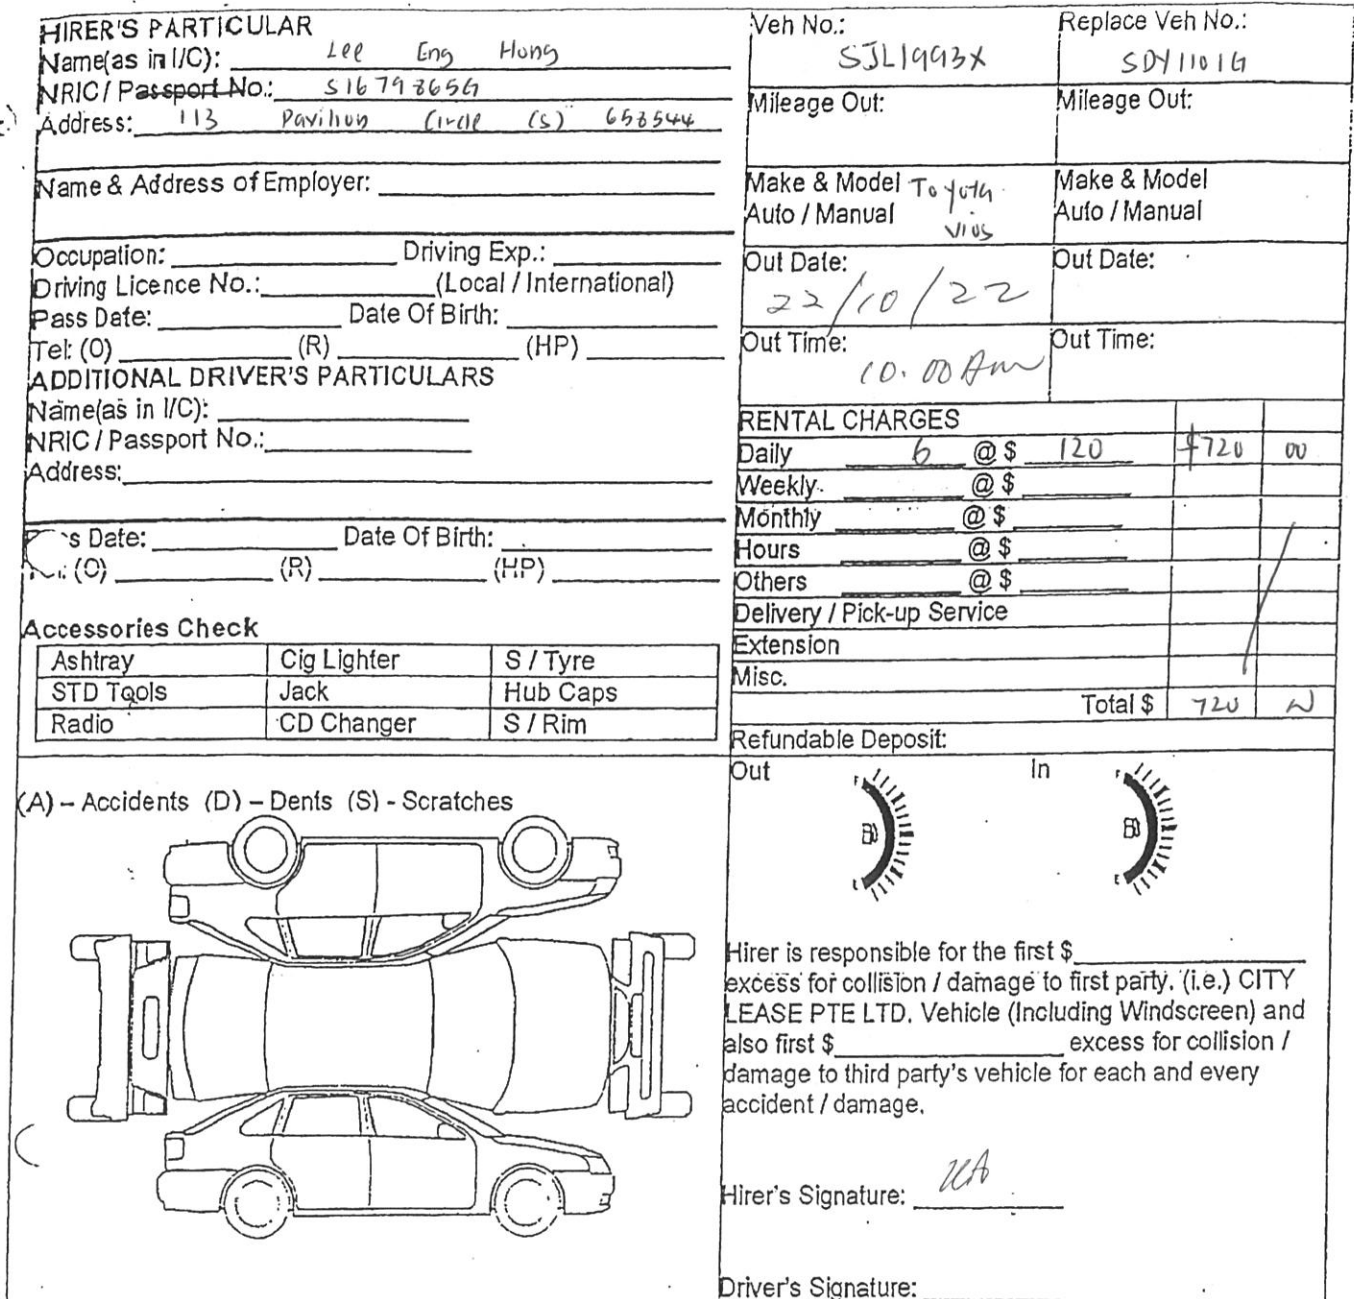 HIRER'S PARTICULAR
Name(as in I/C): Lee Eng Hong
NRIC / Passport No.: S1679865G
Address: 113 Pavilion Circle (S) 658544
Name & Address of Employer:
Occupation: Driving Exp.:
Driving Licence No.: (Local / International)
Pass Date: Date Of Birth:
Tel: (O) (R) (HP)
ADDITIONAL DRIVER'S PARTICULARS
Name(as in I/C):
NRIC / Passport No.:
Address:
s Date: Date Of Birth:
(O) (R) (HP)
Accessories Check
Ashtray Cig Lighter S / Tyre
STD Tools Jack Hub Caps
Radio CD Changer S / Rim
(A) – Accidents (D) – Dents (S) - Scratches
Veh No.: Replace Veh No.:
SJL1993X SDY1101G
Mileage Out: Mileage Out:
Make & Model Toyota Make & Model
Auto / Manual Vios Auto / Manual
Out Date: Out Date:
22/10/22
Out Time: Out Time:
10.00 Am
RENTAL CHARGES
Daily 6 @ $ 120 $720 00
Weekly @ $
Monthly @ $
Hours @ $
Others @ $
Delivery / Pick-up Service
Extension
Misc.
Total $ 720
Refundable Deposit:
Out In
F F
E E
Hirer is responsible for the first $
excess for collision / damage to first party. (i.e.) CITY
LEASE PTE LTD. Vehicle (Including Windscreen) and
also first $ excess for collision /
damage to third party's vehicle for each and every
accident / damage.
Hirer's Signature:
Driver's Signature: